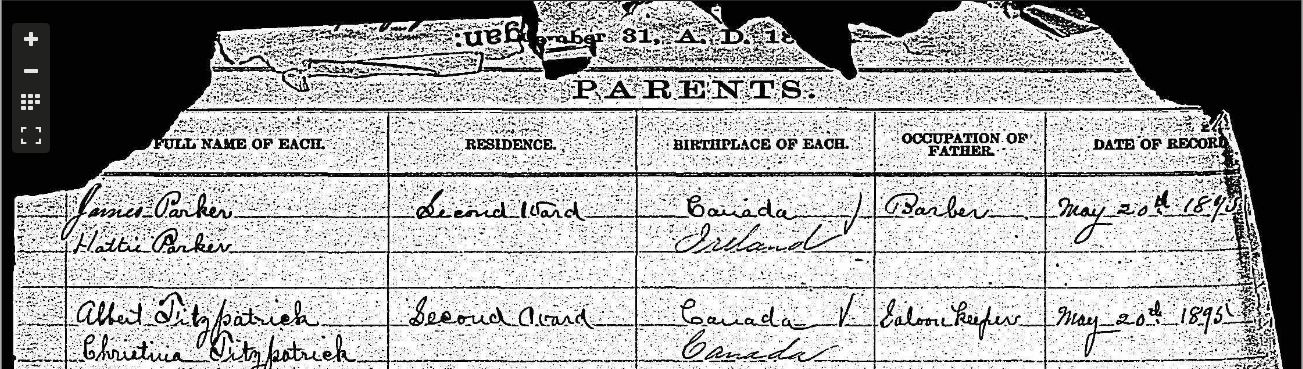 31, A. D. 18
PARENTS.
FULL NAME OF EACH. RESIDENCE. BIRTHPLACE OF EACH. OCCUPATION OF FATHER. DATE OF RECORD
James Parker Second Ward Canada Barber May 20th 1895
Hattie Parker Ireland
Albert Fitzpatrick Second Ward Canada Saloon keeper May 20th 1895
Christina Fitzpatrick Canada